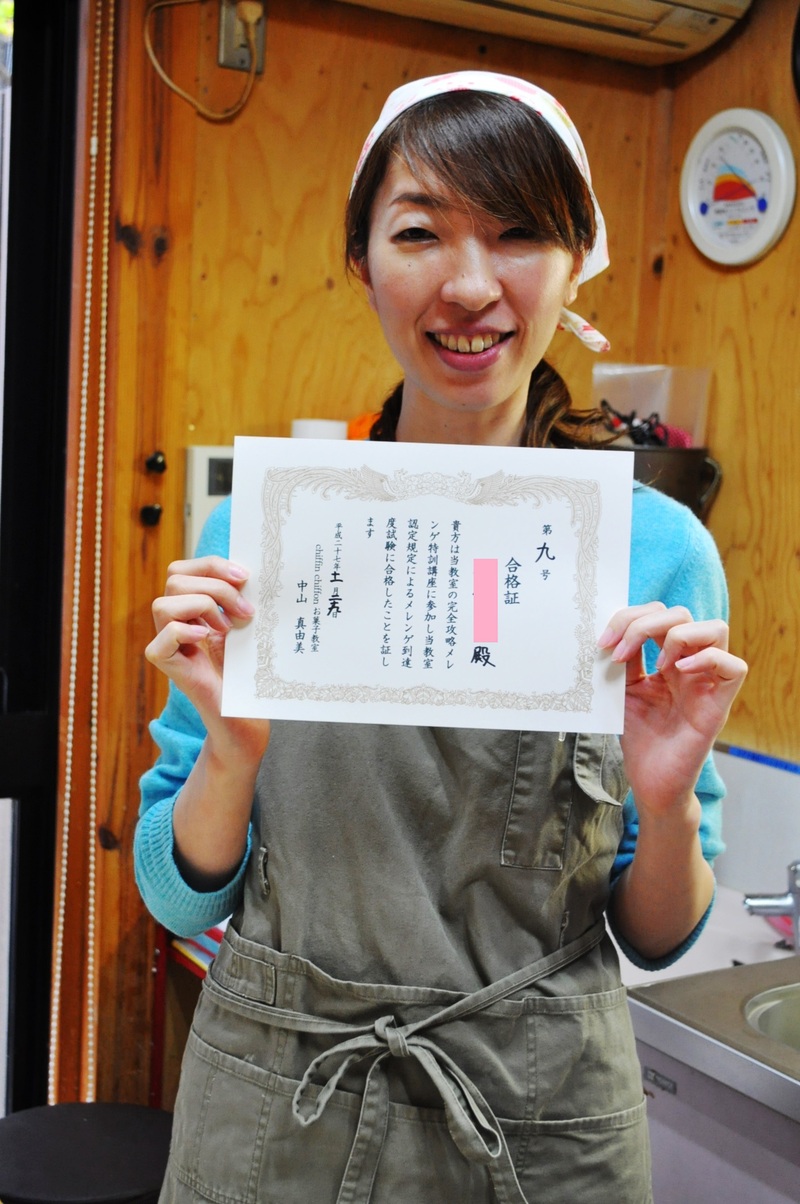 第九号
合格証
殿
貴方は当教室の完全攻略メレ
ンゲ特訓講座に参加し当教室
認定規定によるメレンゲ到達
度試験に合格したことを証し
ます
平成二十七年十一月
chiffin chiffon お菓子教室
中山 真由美